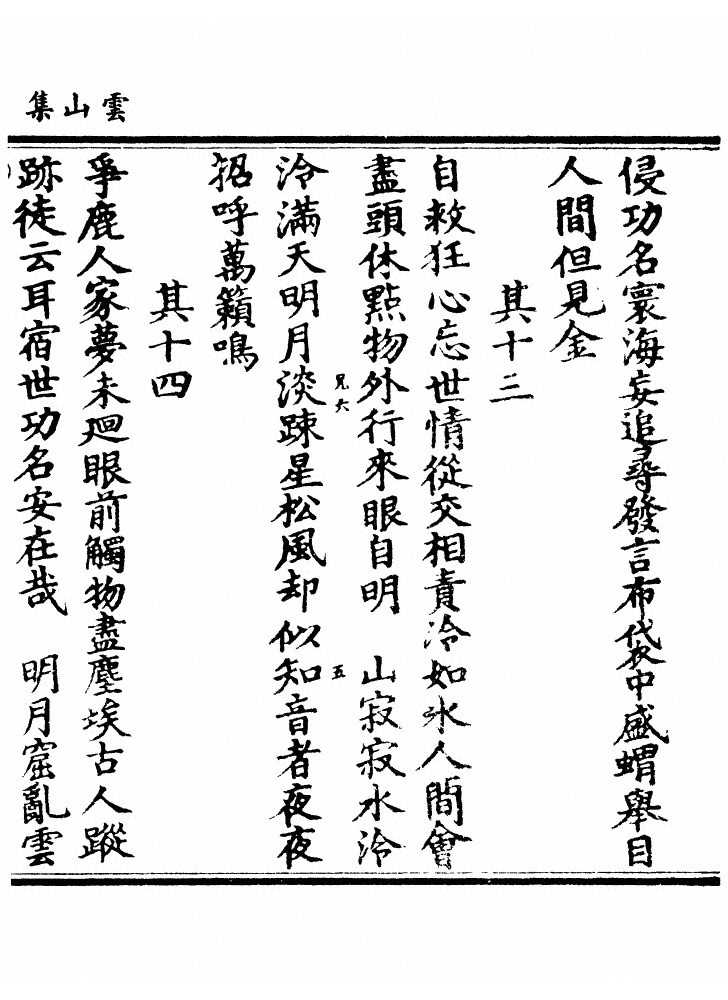 雲山集
侵功名寰海妄追尋發言布袋中盛蝟舉目
人間但見金
其十三
自救狂心忘世情從交相責冷如氷人間會
盡頭休點物外行來眼自明　山寂寂水泠
泠滿天明月淡踈星松風却似知音者夜夜
招呼萬籟鳴
兄六
五
其十四
爭鹿人家夢未迴眼前觸物盡塵埃古人蹤
跡徒云耳宿世功名安在哉　明月窟亂雲